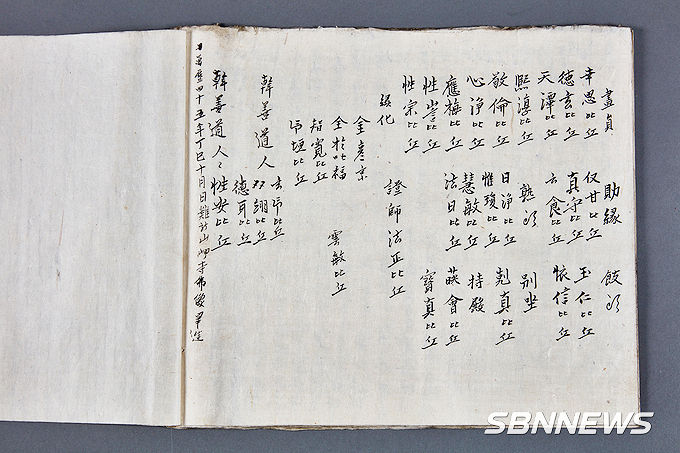 畫員 助緣 飯頭
幸思比丘 甘比丘 玉仁比丘
德玄比丘 真守比丘 信比丘
天潭比丘 食比丘
熙淳比丘 熟頭 別坐
敬倫比丘 日淨比丘 惟瓊比丘 剋真比丘
心淨比丘 慧敏比丘 持殿
應梅比丘 法日比丘 會比丘
性訔比丘 寶真比丘
性宗比丘 證師法正比丘
緣化
金彦京
金於叱福 雲敏比丘
智寬比丘
垣比丘
幹善道人 比丘
双翊比丘
德耳比丘
幹善道人 性安比丘
萬曆四十五年丁巳十月日雞山岬寺佛畢造
SBNNEWS